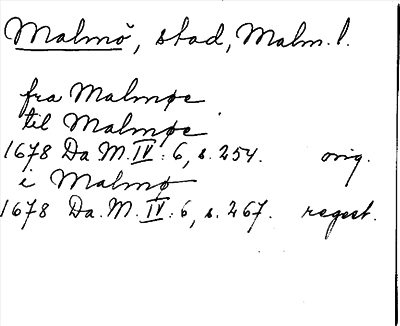 Malmö, stad, Malm. l.
fra Malmøe
til Malmøe
1678 Da M. IV: 6, s. 254. orig.
i Malmø
1678 Da. M. IV: 6, s. 267. regest.